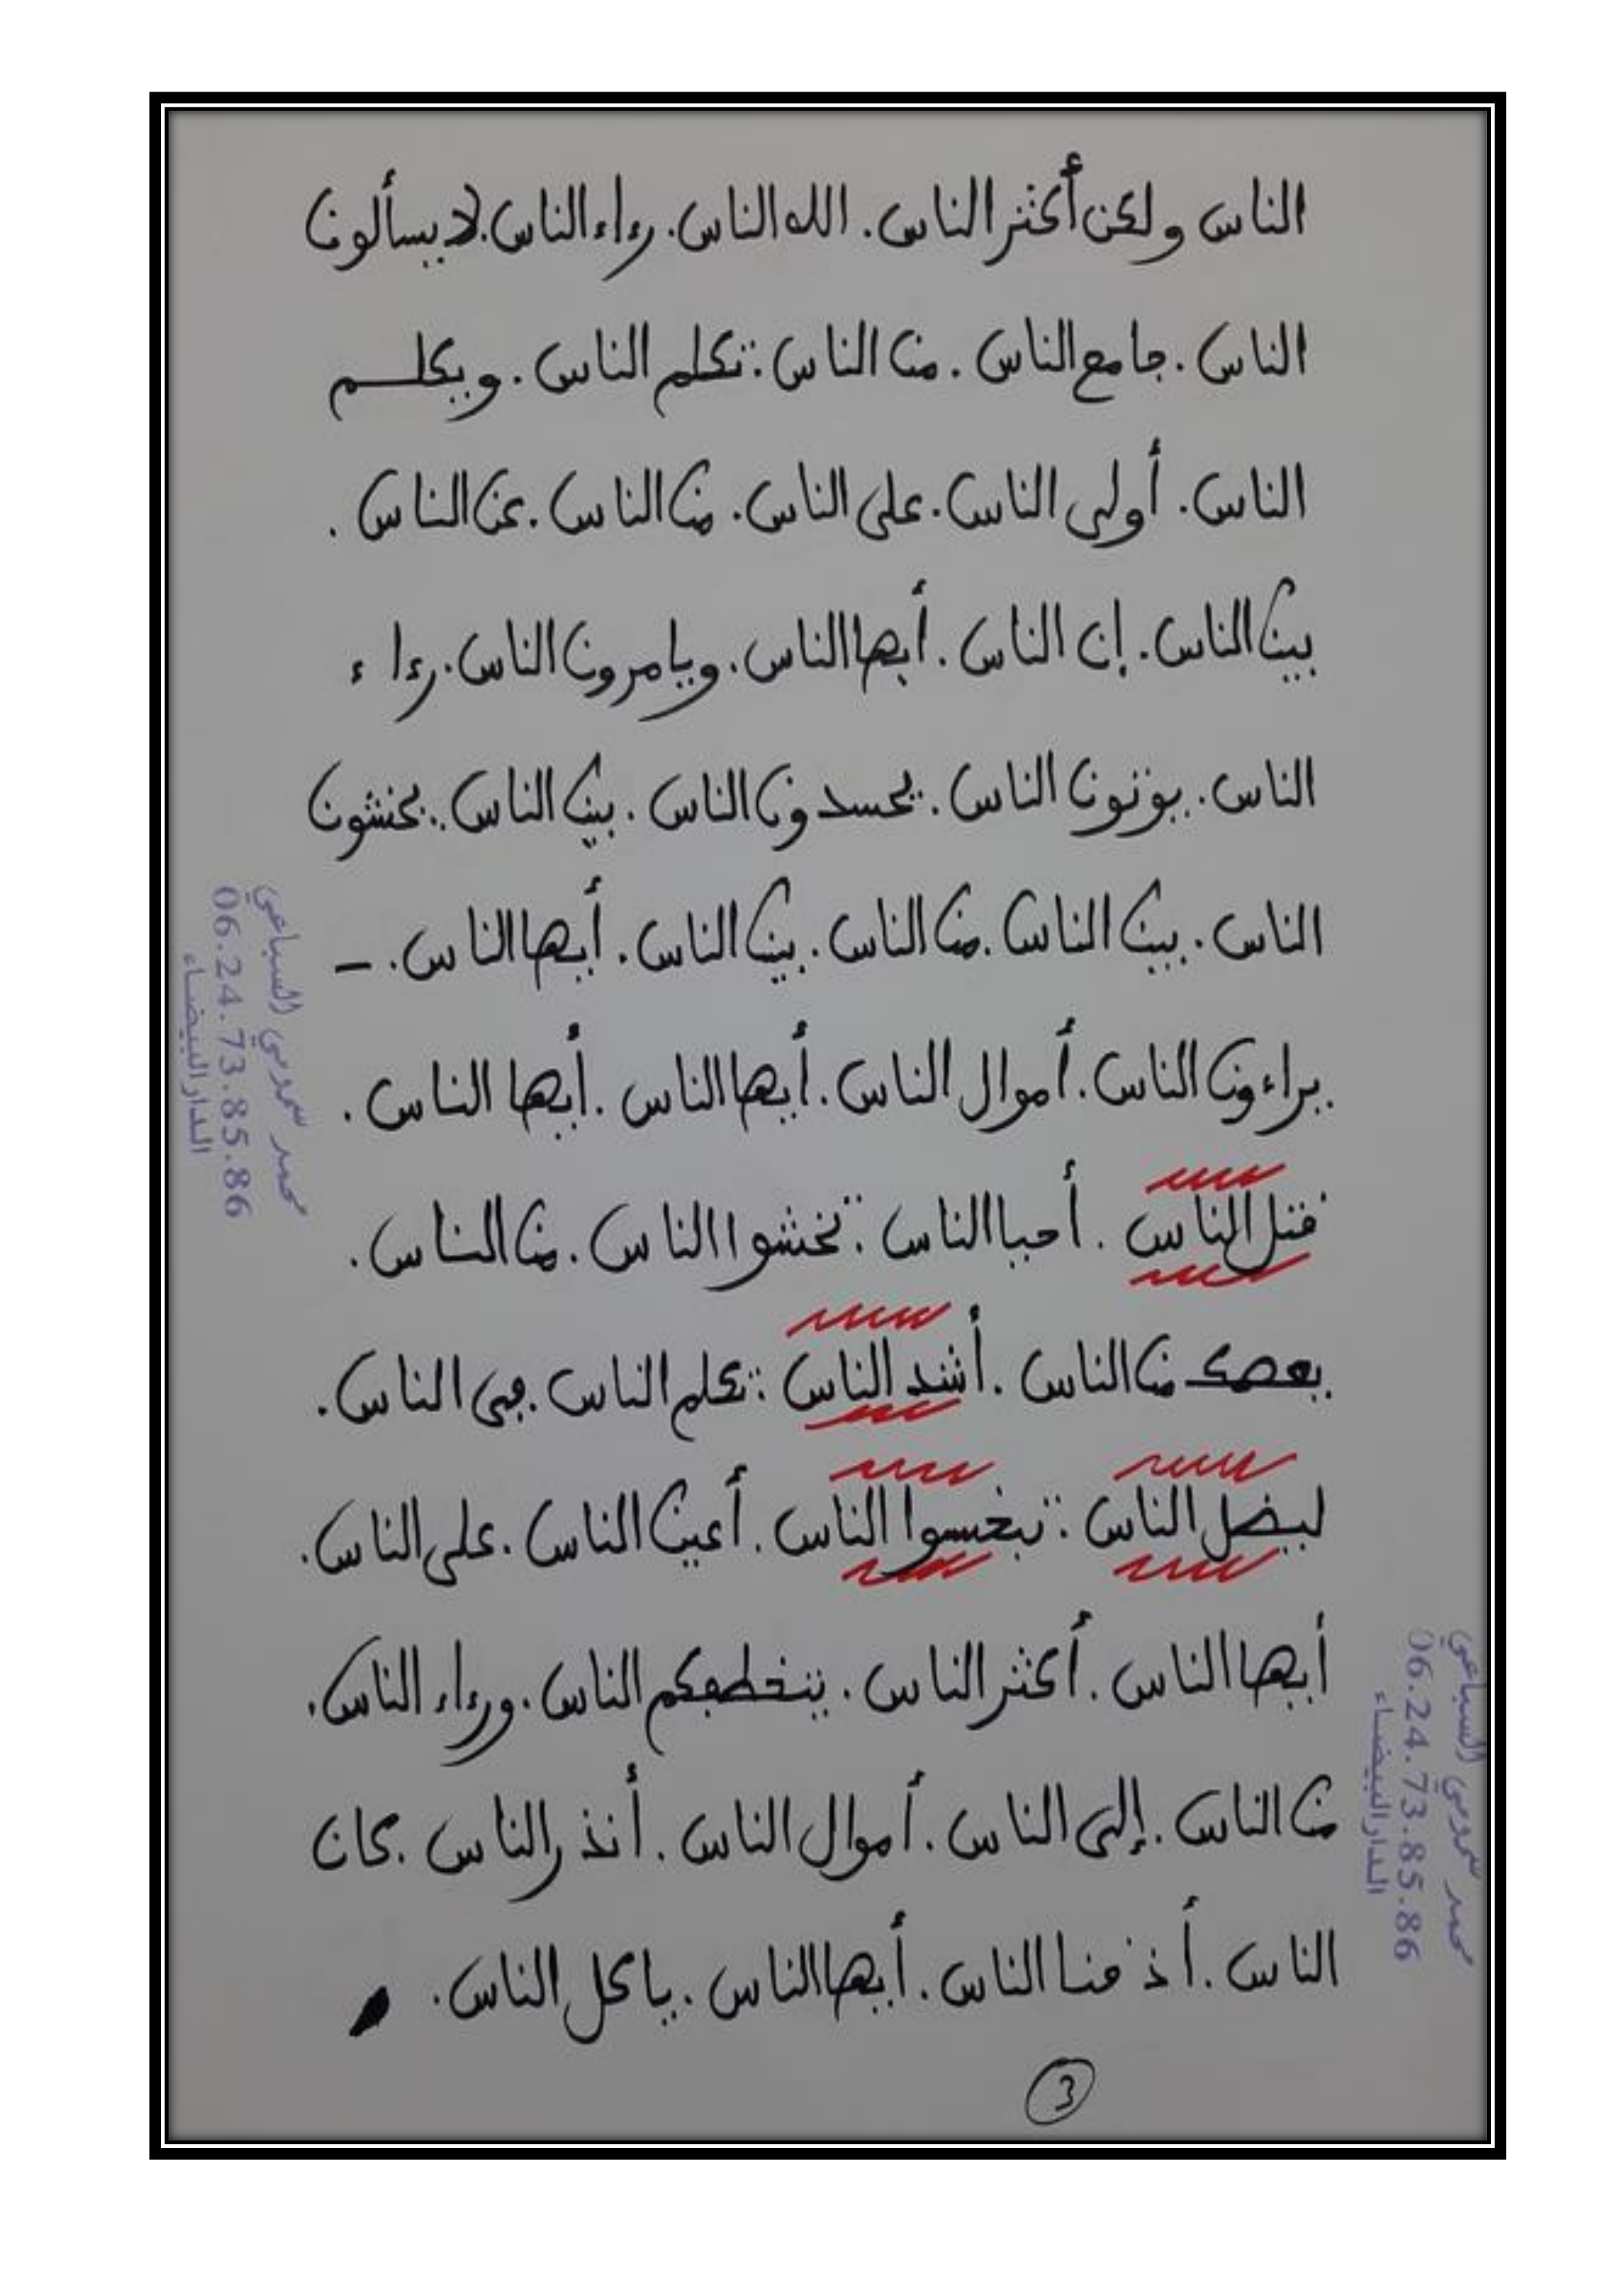 الناس ولكن أكثر الناس. الله الناس. رءاء الناس. لا يسألون
الناس. جامع الناس. من الناس. تكلم الناس. ويكلم
الناس. أولى الناس. على الناس. من الناس. عن الناس.
بين الناس. إن الناس. أيها الناس. ويامرون الناس. رءاء
الناس. يوتون الناس. يحسدون الناس. بين الناس. يخشون
الناس. بين الناس. من الناس. بين الناس. أيها الناس. –
يراءون الناس. أموال الناس. أيها الناس. أيها الناس.
قتل الناس. أحيا الناس. تخشوا الناس. من الناس.
يعصمك من الناس. أشد الناس. تكلم الناس. في الناس.
ليضل الناس. تبخسوا الناس. أعين الناس. على الناس.
أيها الناس. أكثر الناس. يتخطفكم الناس. ورءاء الناس.
من الناس. إلى الناس. أموال الناس. أنذر الناس. كان
الناس. أذقنا الناس. أيها الناس. ياكل الناس.
3
محمد سمومي السباعي
06.24.73.85.86
الدار البيضاء
محمد سمومي السباعي
06.24.73.85.86
الدار البيضاء